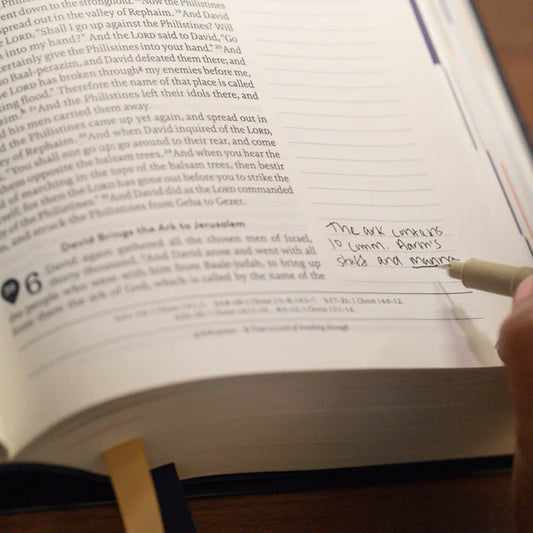 ent down to the stronghold. ¹⁸Now the Philistines
spread out in the valley of Rephaim. ¹⁹And David
LORD, "Shall I go up against the Philistines? Will
into my hand?" And the LORD said to David, "Go
certainly give the Philistines into your hand." ²⁰And
to Baal-perazim, and David defeated them there; and
LORD has broken through my enemies before me,
king flood." Therefore the name of that place is called
²¹And the Philistines left their idols there, and
d his men carried them away.
d the Philistines came up yet again, and spread out in
ey of Rephaim. ²³And when David inquired of the LORD,
"You shall not go up; go around to their rear, and come
them opposite the balsam trees. ²⁴And when you hear the
d of marching in the tops of the balsam trees, then bestir
yourself, for then the LORD has gone out before you to strike the
y of the Philistines." ²⁵And David did as the LORD commanded
, and struck the Philistines from Geba to Gezer.
David Brings the Ark to Jerusalem
6 David again gathered all the chosen men of Israel,
thirty thousand. ²And David arose and went with all
the people who were with him from Baale-judah, to bring up
from there the ark of God, which is called by the name of the
The ark contains
10 comm. Aarm's
staff and manna